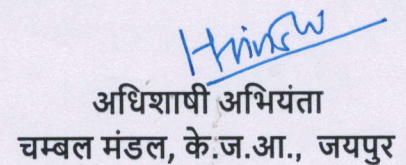 अधिशाषी अभियंता
चम्बल मंडल, के.ज.आ., जयपुर